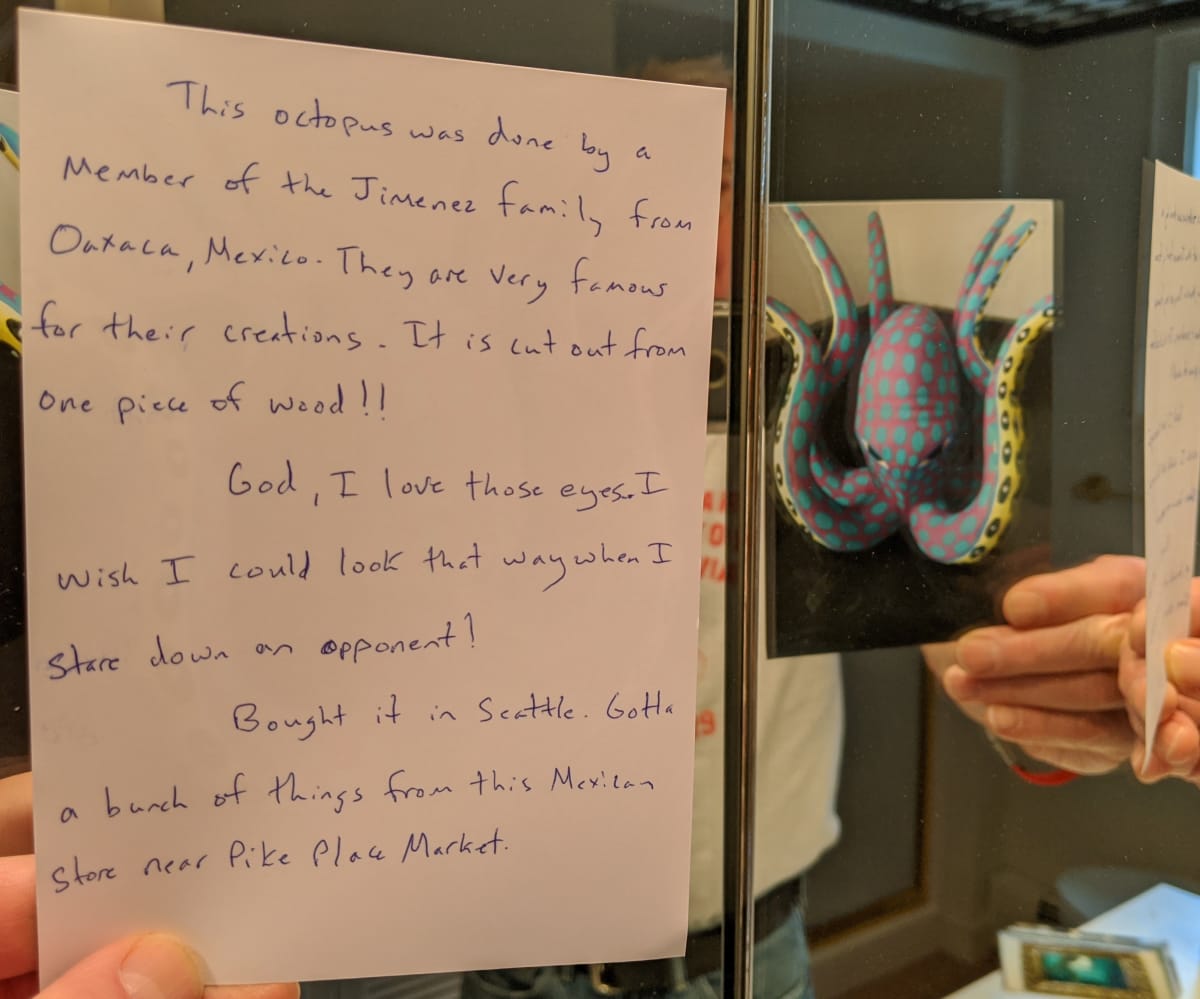 This octopus was done by a
Member of the Jimenez family from
Oaxaca, Mexico. They are very famous
for their creations. It is cut out from
one piece of wood!!
God, I love those eyes. I
wish I could look that way when I
stare down an opponent!
Bought it in Seattle. Gotta
a bunch of things from this Mexican
store near Pike Place Market.